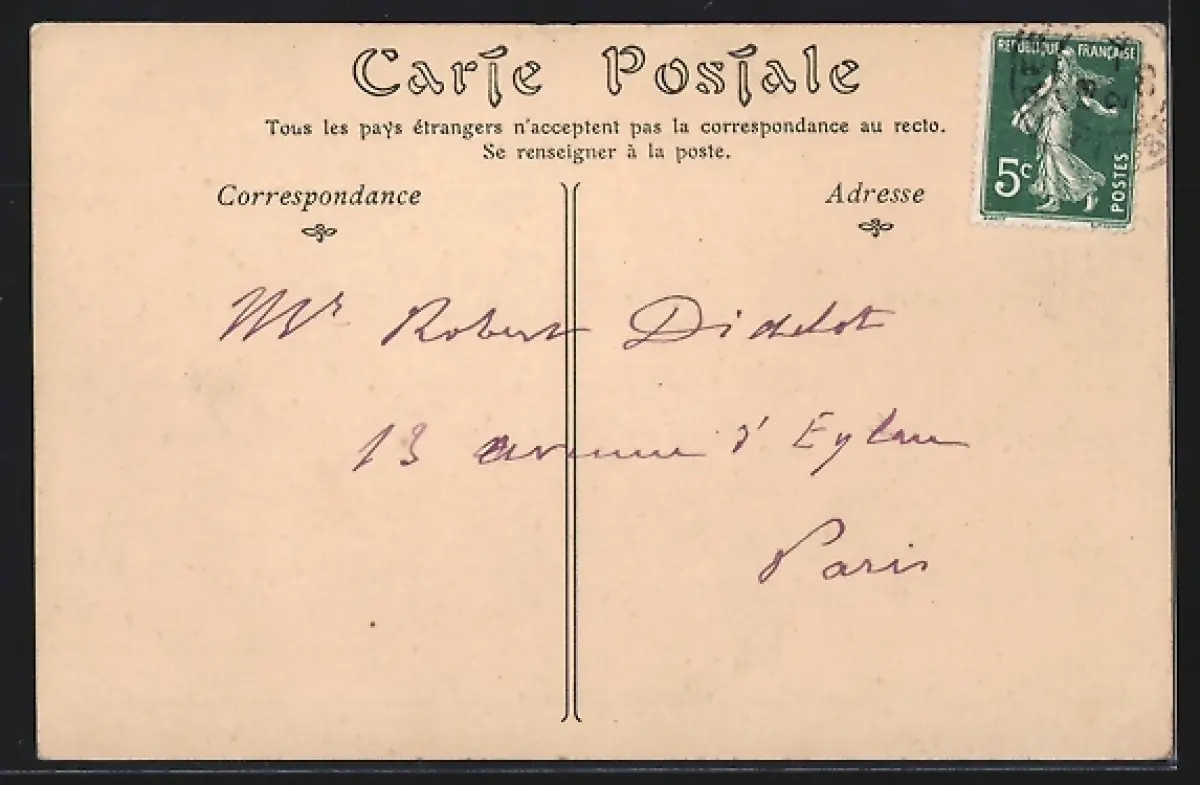 Carte Postale
Tous les pays étrangers n'acceptent pas la correspondance au recto.
Se renseigner à la poste.
Correspondance
Adresse
REPUBLIQUE FRANÇAISE
5c
POSTES
Mr Robert Didelot
13 avenue d'Eylau
Paris